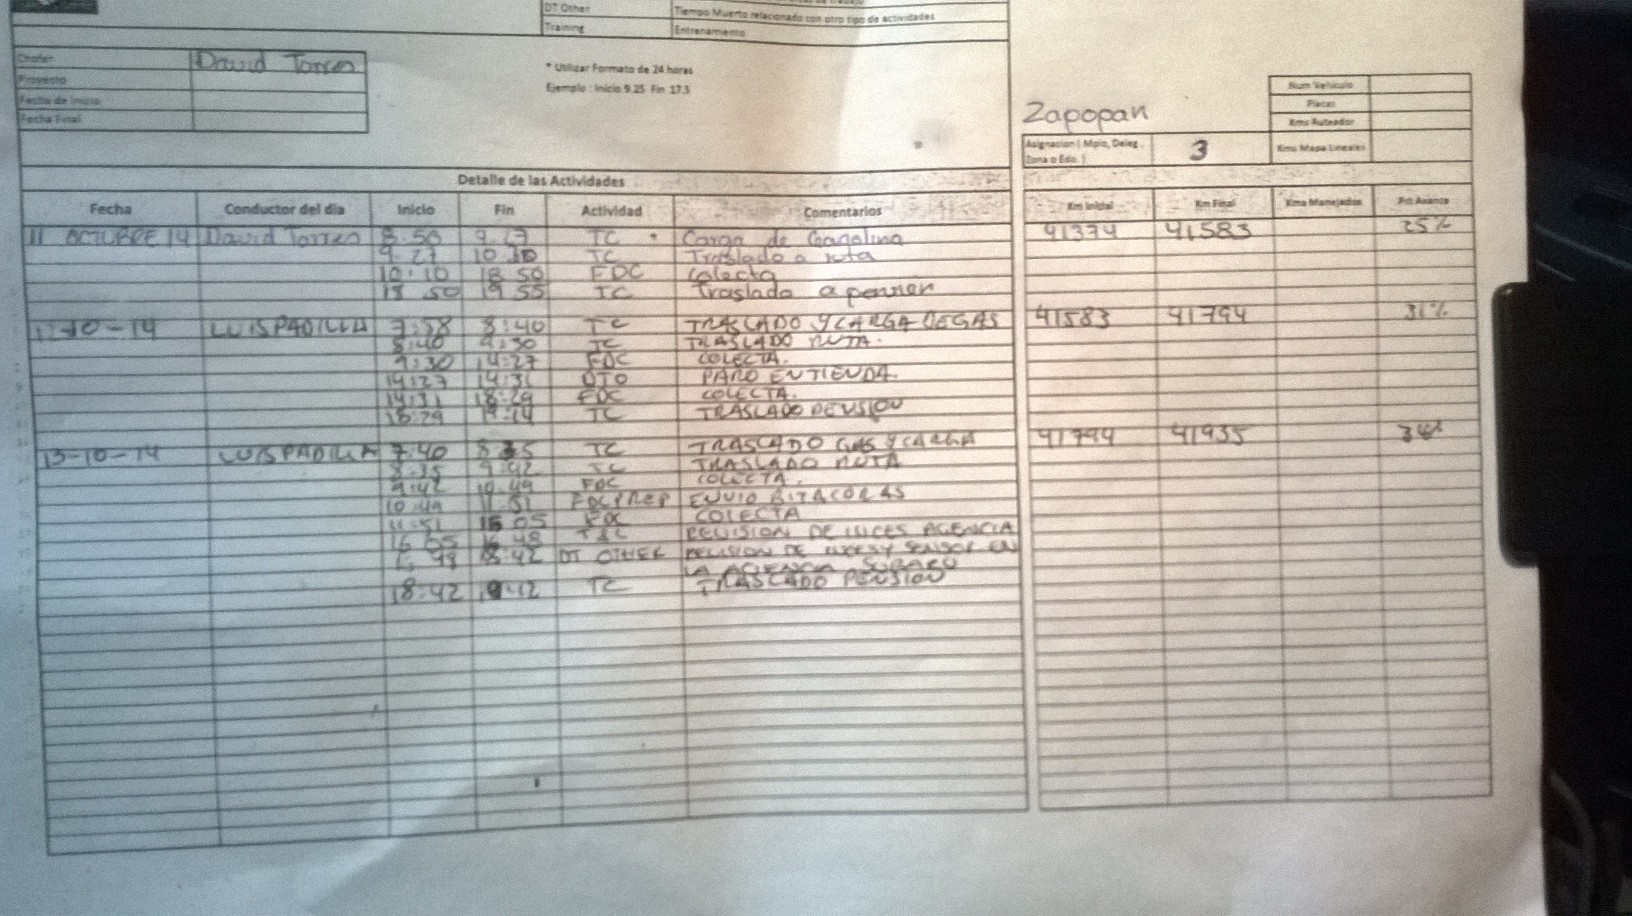 DT Other Tiempo Muerto relacionado con otro tipo de actividades
Training Entrenamiento
Chofer David Torres
Proyecto
Fecha de Inicio
Fecha Final
* Utilizar Formato de 24 horas
Ejemplo : Inicio 9.25 Fin 17.5
Zapopan
Asignacion ( Mpio, Deleg, Zona o Edo. ) 3
Num Vehiculo
Placas
Kms Ruteador
Kms Mapa Lineales
Detalle de las Actividades
Fecha Conductor del dia Inicio Fin Actividad Comentarios Km Inicial Km Final Kms Manejados Pct Avance
11 OCTUBRE 14 David Torres 8:50 9:27 TC Carga de Gagolina 41374 41583 25%
9:27 10:10 TC Traslado a ruta
10:10 18 50 FDC Colecta
18 50 19 55 TC Traslado a
12-10-14 LUIS PADILLA 7:58 8:40 TC TRASLADO Y CARGA DE GAS 41583 41794 31%
8:40 9:30 TC TRASLADO RUTA.
9:30 14:27 FDC COLECTA.
14:27 14:31 DTO PARO EN TIENDA.
14:31 18:29 FDC COLECTA.
18:29 19:14 TC TRASLADO PENSION
13-10-14 LUIS PADILLA 7:40 8:35 TC TRASLADO GAS Y CARGA 41794 41935
8:35 9:42 TC TRASLADO RUTA
9:42 10:49 FDC COLECTA.
10:49 11:51 FDC PREP ENVIO BITACORAS
11:51 16 05 FDC COLECTA
16 05 16 48 REVISION DE LUCES AGENCIA
16 48 18:42 DT OTHER REVISION DE LUCES Y SENSOR EN
LA AGENCIA SUBARU
18:42 19:42 TC TRASLADO PENSION